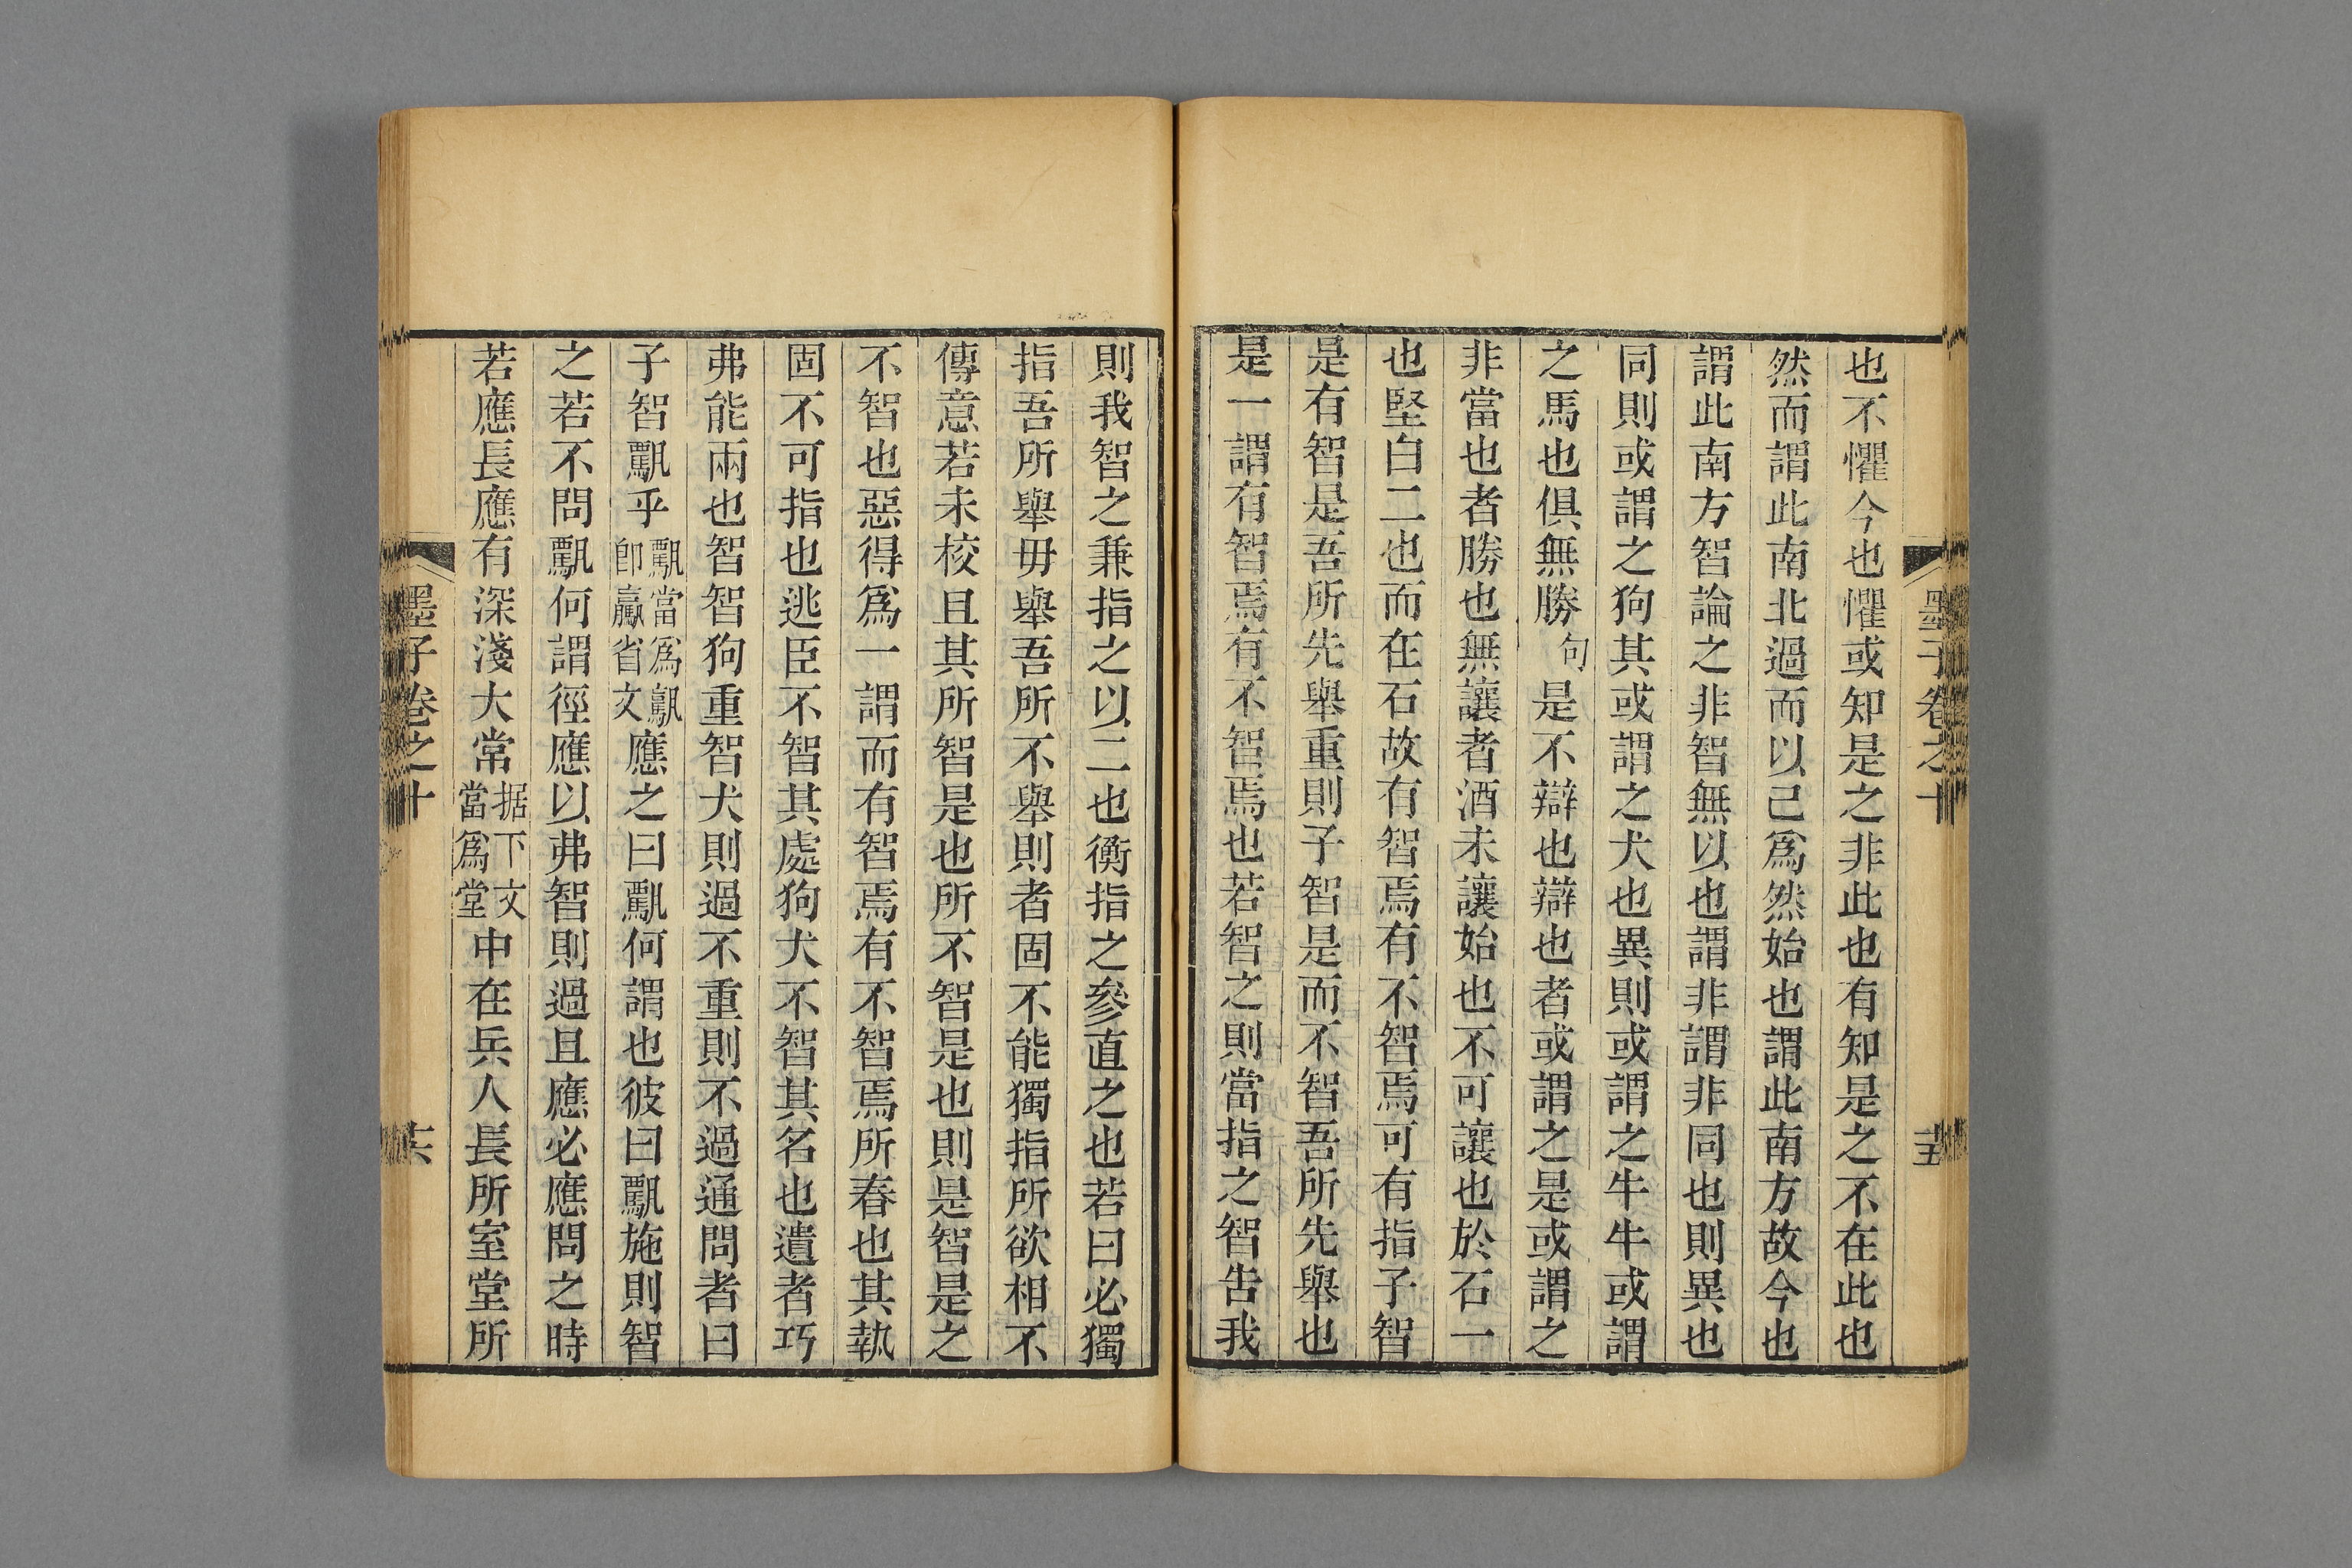 墨子卷之十
十五
也不懼今也懼或知是之非此也有知是之不在此也
然而謂此南北過而以己爲然始也謂此南方故今也
謂此南方智論之非智無以也謂非謂非同也則異也
同則或謂之狗其或謂之犬也異則或謂之牛牛或謂
之馬也俱無勝句是不辯也辯也者或謂之是或謂之
非當也者勝也無讓者酒未讓始也不可讓也於石一
也堅白二也而在石故有智焉有不智焉可有指子智
是有智是吾所先舉重則子智是而不智吾所先舉也
是一謂有智焉有不智焉也若智之則當指之智告我
則我智之兼指之以二也衡指之參直之也若曰必獨
指吾所舉毋舉吾所不舉則者固不能獨指所欲相不
傳意若未校且其所智是也所不智是也則是智是之
不智也惡得爲一謂而有智焉有不智焉所春也其執
固不可指也逃臣不智其處狗犬不智其名也遺者巧
弗能兩也智智狗重智犬則過不重則不過通問者曰
子智䮷乎䮷當爲鸁即贏省文應之曰䮷何謂也彼曰䮷施則智
之若不問䮷何謂徑應以弗智則過且應必應問之時
若應長應有深淺大常据下文當爲堂中在兵人長所室堂所
墨子卷之十
十六